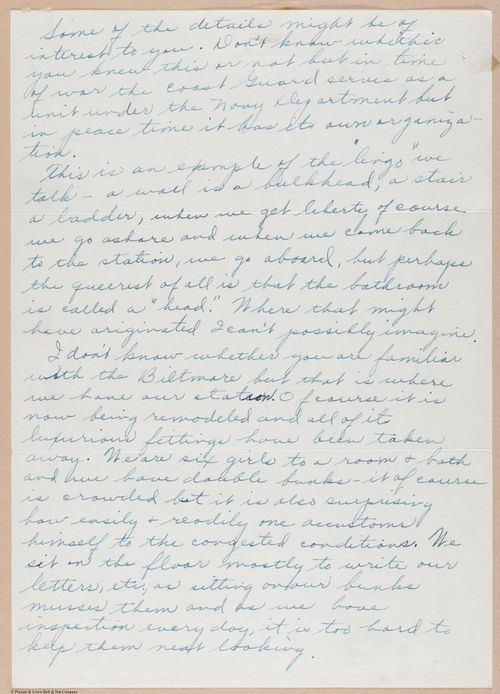 Some of the details might be of
interest to you. Don't know whether
you knew this or not but in time
of war the Coast Guard serves as a
unit under the Navy Department but
in peace time it has its own organiza-
tion.
This is an example of the "lingo" we
talk - a wall is a bulkhead, a stair
a ladder, when we get liberty of course
we go ashore and when we come back
to the station, we go aboard, but perhaps
the queerest of all is that the bathroom
is called a "head." Where that might
have originated I can't possibly imagine.
I don't know whether you are familiar
with the Biltmore but that is where
we have our station. Of course it is
now being remodeled and all of its
luxurious fittings have been taken
away. We are six girls to a room & bath
and we have double bunks - it of course
is crowded but it is also surprising
how easily & readily one accustoms
himself to the congested conditions. We
sit on the floor mostly to write our
letters, etc., as sitting on our bunks
musses them and as we have
inspection every day, it is too hard to
keep them neat looking.